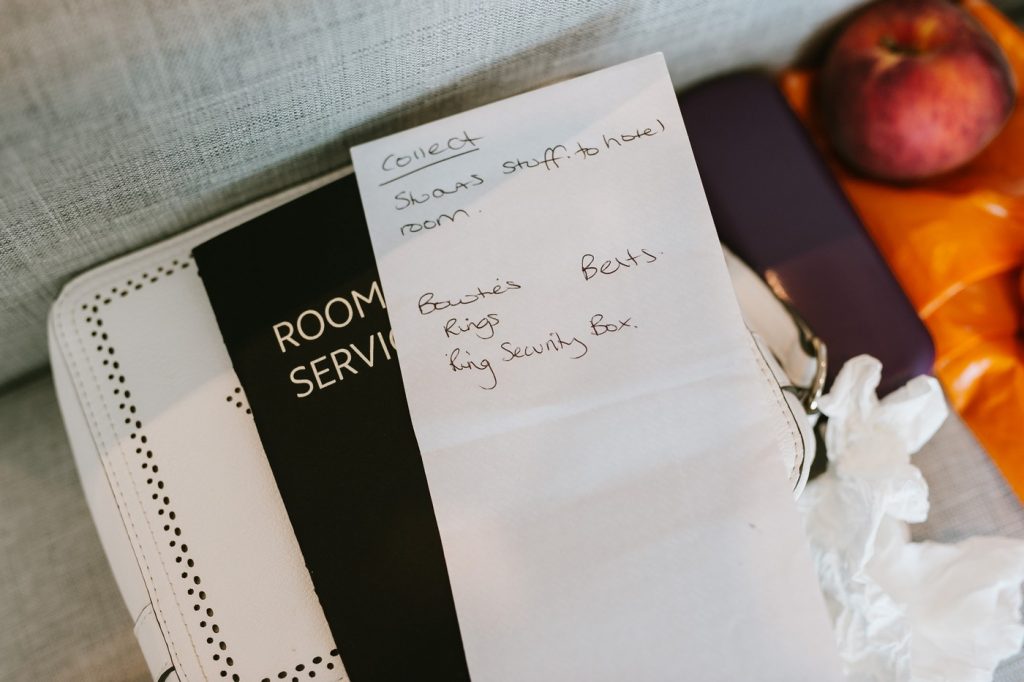 Collect
Stuarts stuff. to hotel
room.
Bowtie's Belts.
Rings
Ring Security Box.
ROOM
SERVIC